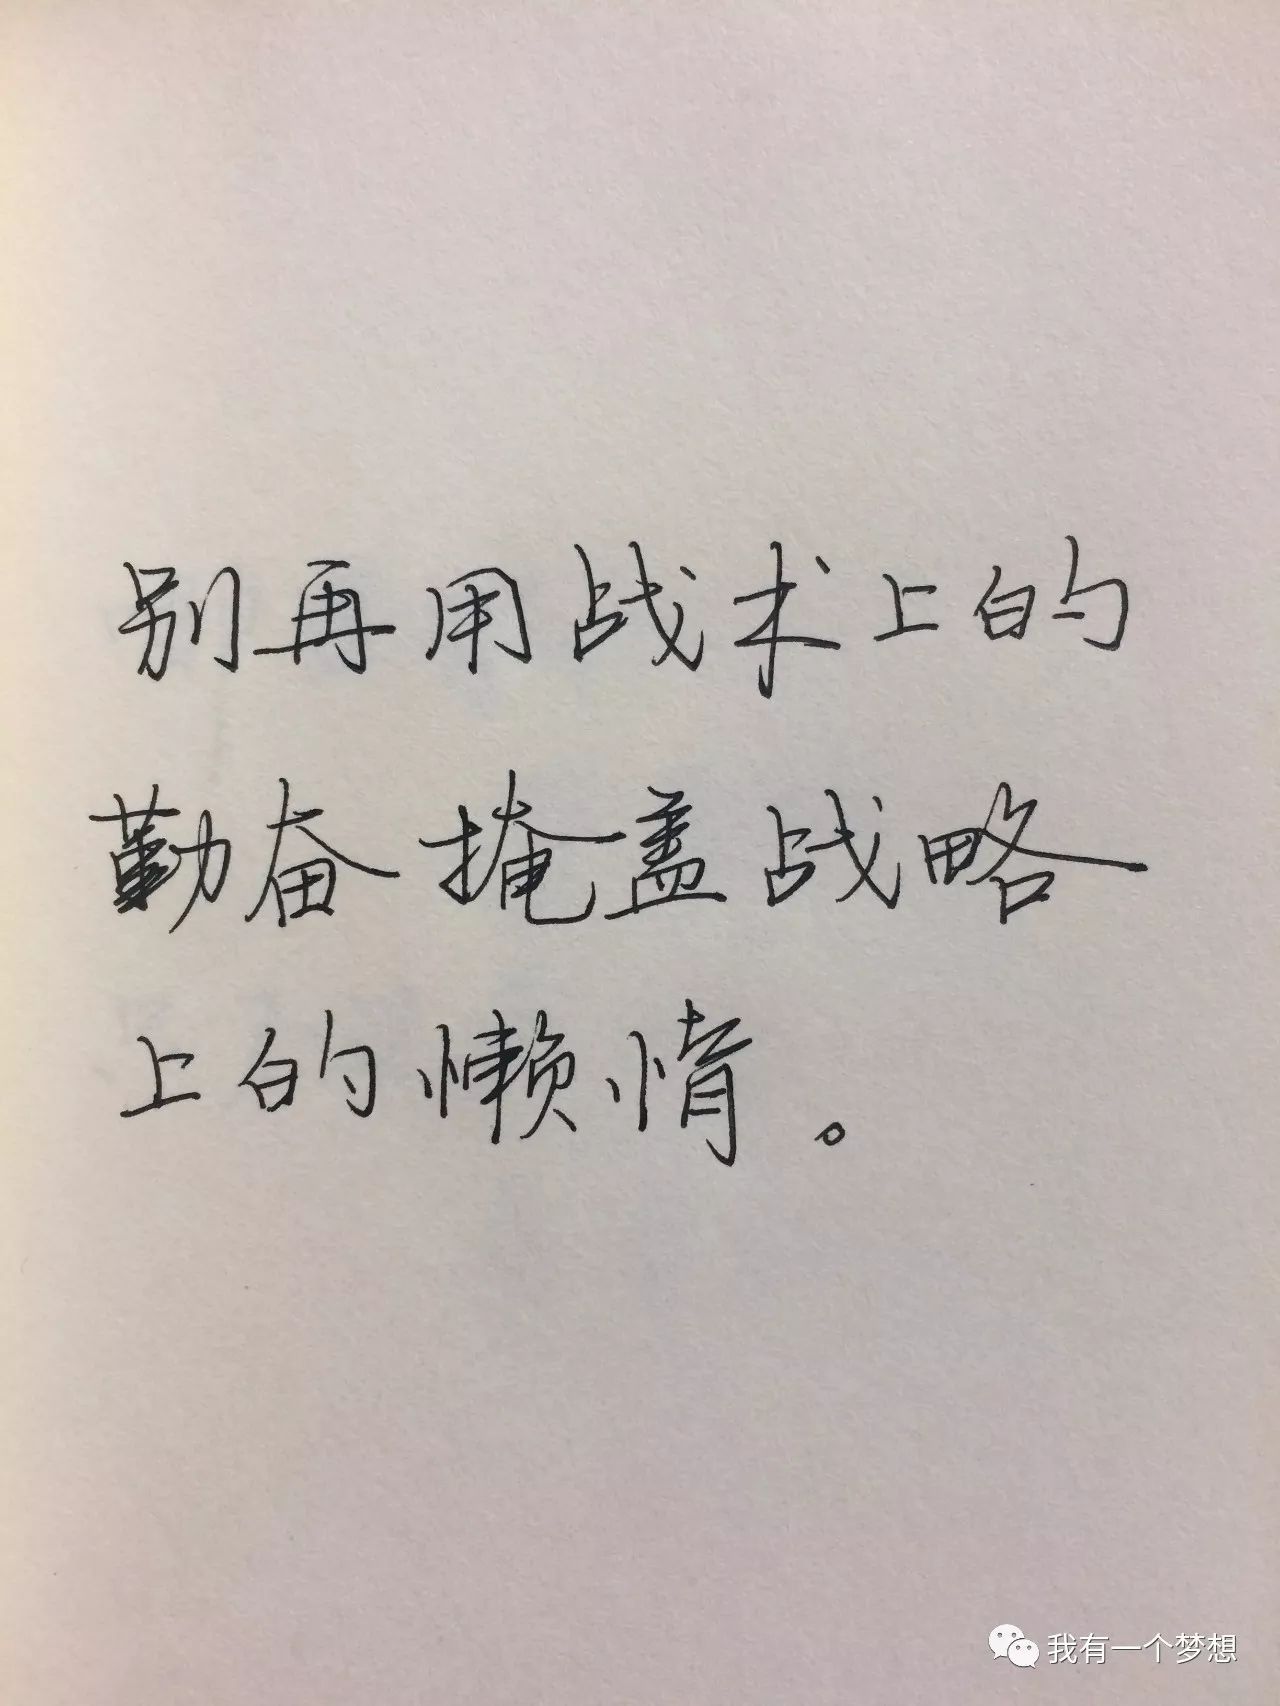 别再用战术上的
勤奋掩盖战略
上的懒惰。
我有一个梦想